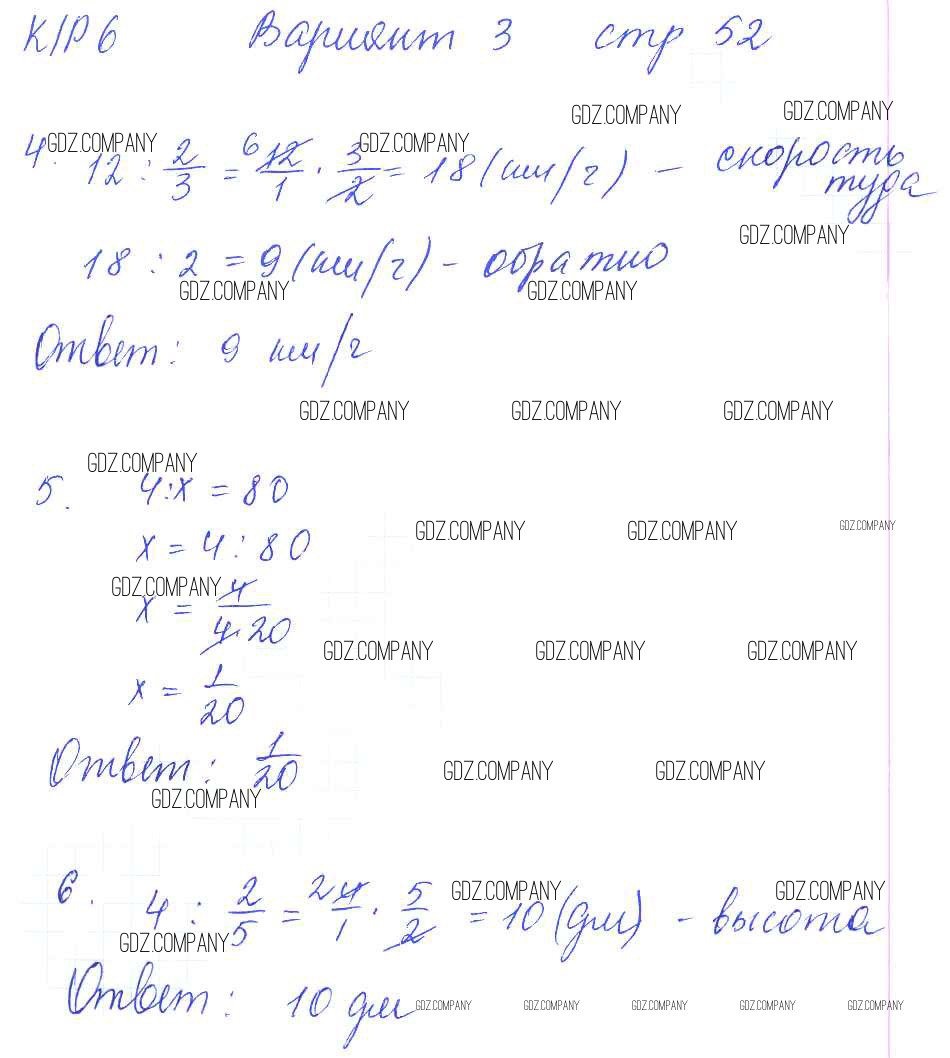 К/Р 6 Вариант 3 стр 52
GDZ.COMPANY GDZ.COMPANY
GDZ.COMPANY GDZ.COMPANY
4. 12 : 2/3 = 6 12/1 · 3/2 = 18 (км/ч) – скорость
туда
GDZ.COMPANY
18 : 2 = 9 (км/ч) – обратно
GDZ.COMPANY GDZ.COMPANY
Ответ: 9 км/ч
GDZ.COMPANY GDZ.COMPANY GDZ.COMPANY
GDZ.COMPANY
5. 4:x = 80
GDZ.COMPANY GDZ.COMPANY GDZ.COMPANY
x = 4 : 80
GDZ.COMPANY
x = 4/4·20
GDZ.COMPANY GDZ.COMPANY GDZ.COMPANY
x = 1/20
Ответ: 1/20
GDZ.COMPANY GDZ.COMPANY
GDZ.COMPANY
GDZ.COMPANY GDZ.COMPANY
6. 4 : 2/5 = 2 4/1 · 5/2 = 10 (дм) – высота
GDZ.COMPANY
Ответ: 10 дм
GDZ.COMPANY GDZ.COMPANY GDZ.COMPANY GDZ.COMPANY GDZ.COMPANY